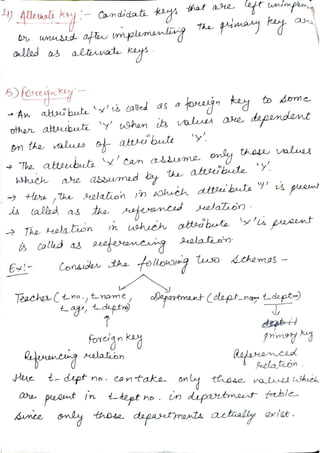 4) Alternate key :- Candidate keys that are left unimplemented
or unused after implementing the primary key are
called as alternate keys.
5) Foreign key -
→ An attribute 'x' is called as a foreign key to some
other attribute 'Y' when its values are dependent
on the values of attribute 'Y'.
→ The attribute 'x' can assume only those values
which are assumed by the attribute 'Y'.
→ Here, the relation in which attribute 'Y' is present
is called as the referenced relation.
→ The relation in which attribute 'x' is present
is called as referencing relation.
Ex:- Consider the following two schemas -
Teacher (t_no, t_name, Department (dept_nam, t_deptno)
t_age, t_deptno)
Foreign key primary key
Referencing relation Referenced
relation
Here t-dept no. can take only those values which
are present in t-dept no. in department table
since only those departments actually exist.